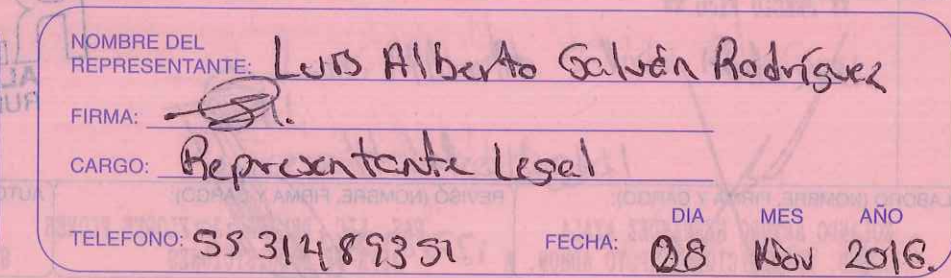 NOMBRE DEL
REPRESENTANTE: Luis Alberto Galván Rodríguez
FIRMA:
CARGO: Representante Legal
DIA MES AÑO
TELEFONO: 5531489351 FECHA: 08 Nov 2016.